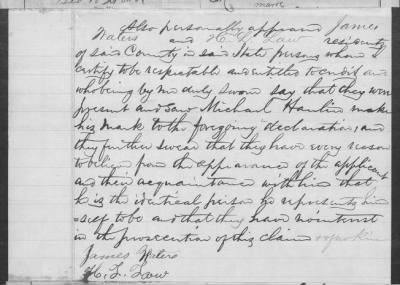 Also personally appeared James
Waters and H. L. Law residents
of said County in said State persons whom I
certify to be respectable and entitled to credit and
who being by me duly sworn say that they were
present and saw Michael Hanlin make
his mark to the foregoing declaration, and
they further swear that they have every reason
to believe from the appearance of the applicant
and their acquaintance with him that
he is the identical person he represents him
=self to be and that they have no interest
in the prosecution of this claim
James Waters
H. L. Law